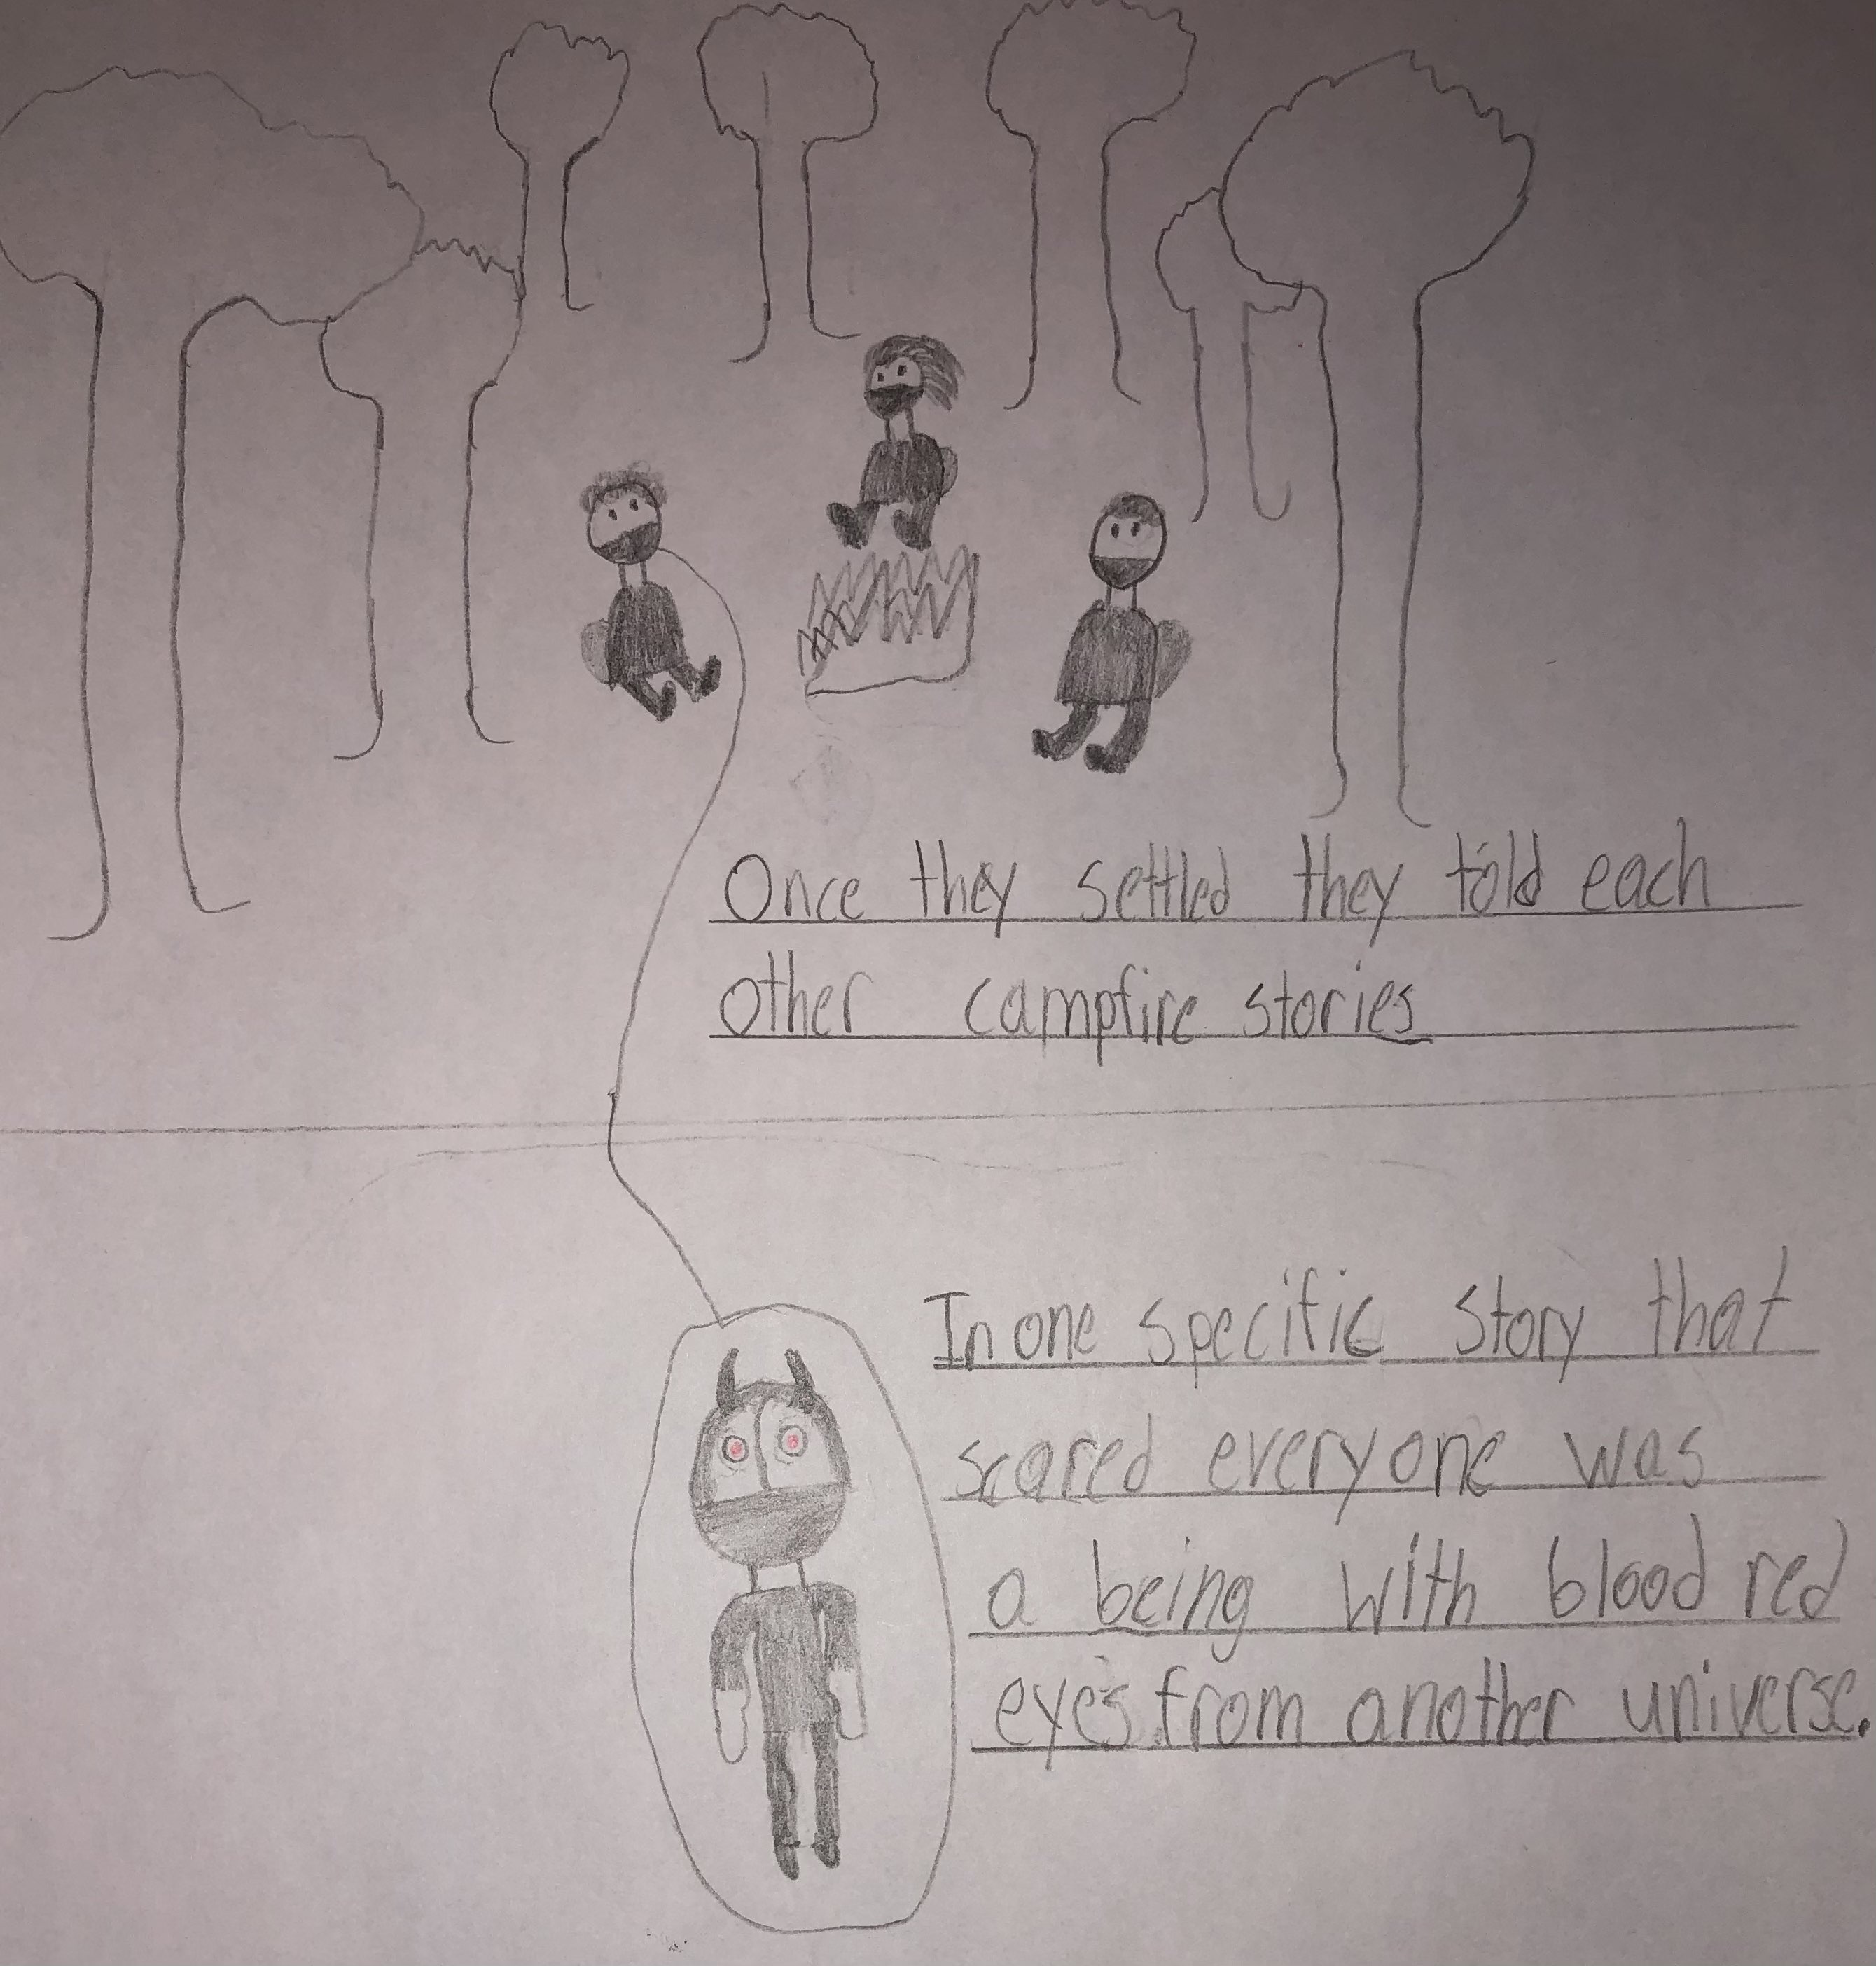 Once they settled they told each
other campfire stories
In one specific story that
scared everyone was
a being with blood red
eyes from another universe.